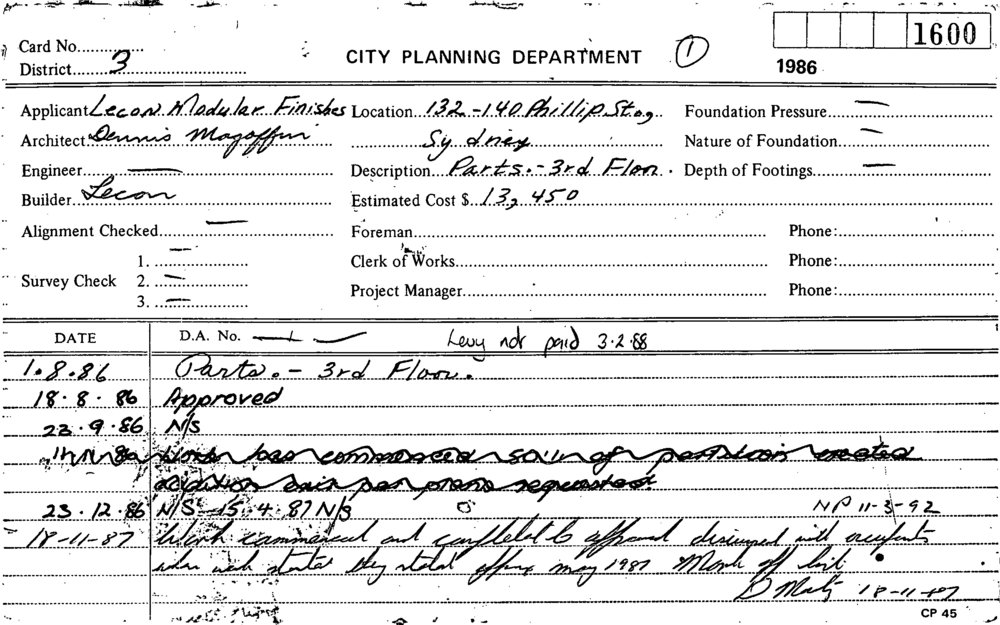 1600
Card No.
District 3
CITY PLANNING DEPARTMENT
1
1986
Applicant Lecon Modular Finishes
Location 132-140 Phillip St.,
Foundation Pressure —
Architect Dennis Magoffin
Sydney
Nature of Foundation —
Engineer —
Description Parts. - 3rd Floor.
Depth of Footings —
Builder Lecon
Estimated Cost $ 13,450
Alignment Checked —
Foreman
Phone:
Survey Check
1. —
Clerk of Works
Phone:
2. —
3. —
Project Manager
Phone:
DATE
D.A. No. —
Levy not paid 3.2.88
1.8.86 Parts. - 3rd Floor.
18.8.86 Approved
23.9.86 N/S
Work has commenced of partitions erected
per plans requested
23.12.86 N/S 15.4.87 N/S NP 11-3-92
18-11-87 Work commenced and completed to approval discussed with occupants
when work started they stated approx may 1987 Mark off list
18-11-87
CP 45